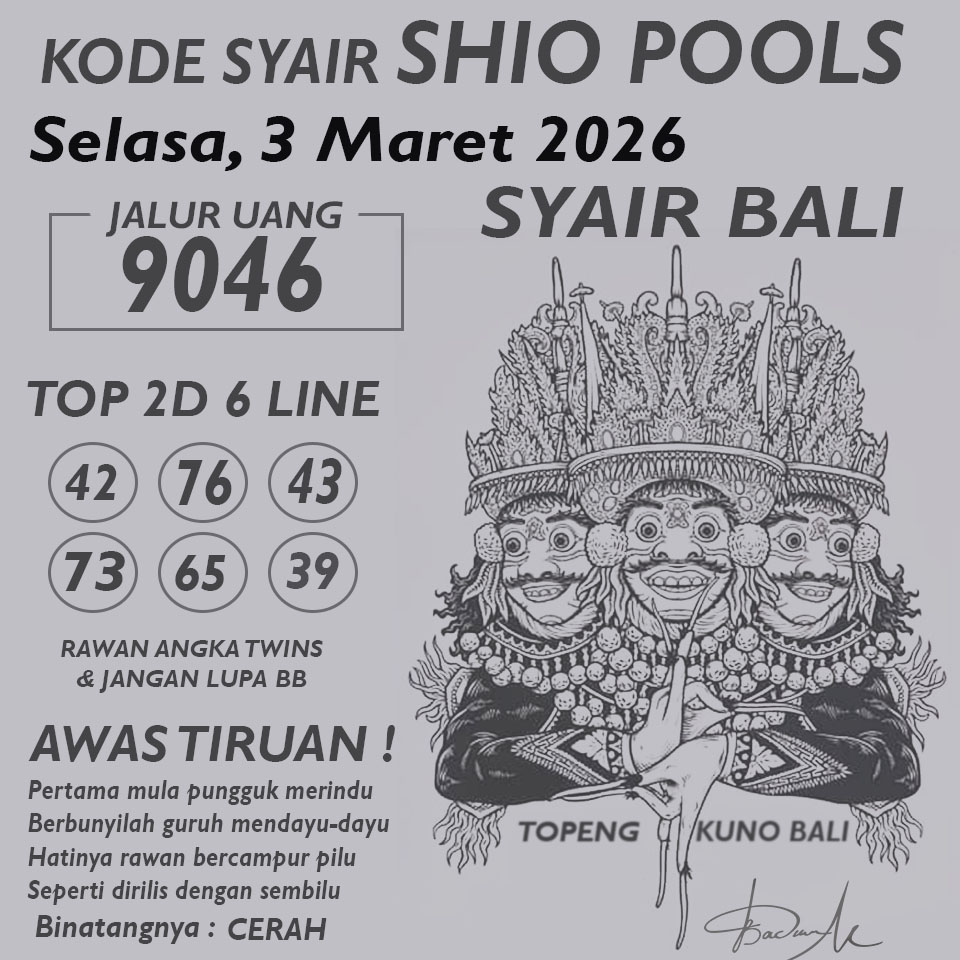 KODE SYAIR SHIO POOLS
Selasa, 3 Maret 2026
SYAIR BALI
JALUR UANG
9046
TOP 2D 6 LINE
42 76 43
73 65 39
RAWAN ANGKA TWINS
& JANGAN LUPA BB
AWAS TIRUAN !
Pertama mula pungguk merindu
Berbunyilah guruh mendayu-dayu
Hatinya rawan bercampur pilu
Seperti dirilis dengan sembilu
Binatangnya : CERAH
TOPENG KUNO BALI